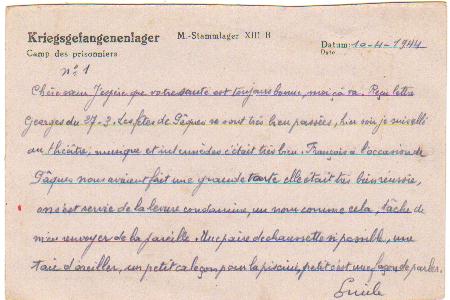 Kriegsgefangenenlager M.-Stammlager XIII B
Camp des prisonniers Datum: 10-4-1944
Date
n° 1
Chère sœur J'espère que votre santé est toujours bonne, moi ça va. Reçu lettre
Georges du 27-3. Les fêtes de Pâques se sont très bien passées, hier soir je suis allé
au théâtre, musique et intermèdes c'était très bien. François à l'occasion de
Pâques nous avaient fait une grande tarte elle était très bien réussie,
on s'est servie de la levure , un nom comme cela, tâche de
m'en renvoyer de la pareille. Une paire de chaussette si possible, une
taie d'oreiller, un petit caleçon pour la piscine, petit c'est une façon de parler.